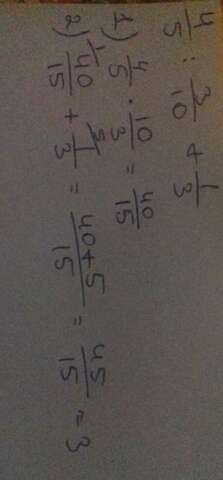 4/5 : 3/10 + 1/3
1) 4/5 · 10/3 = 40/15
2) 40/15 + 1/3 = 40+5/15 = 45/15 = 3